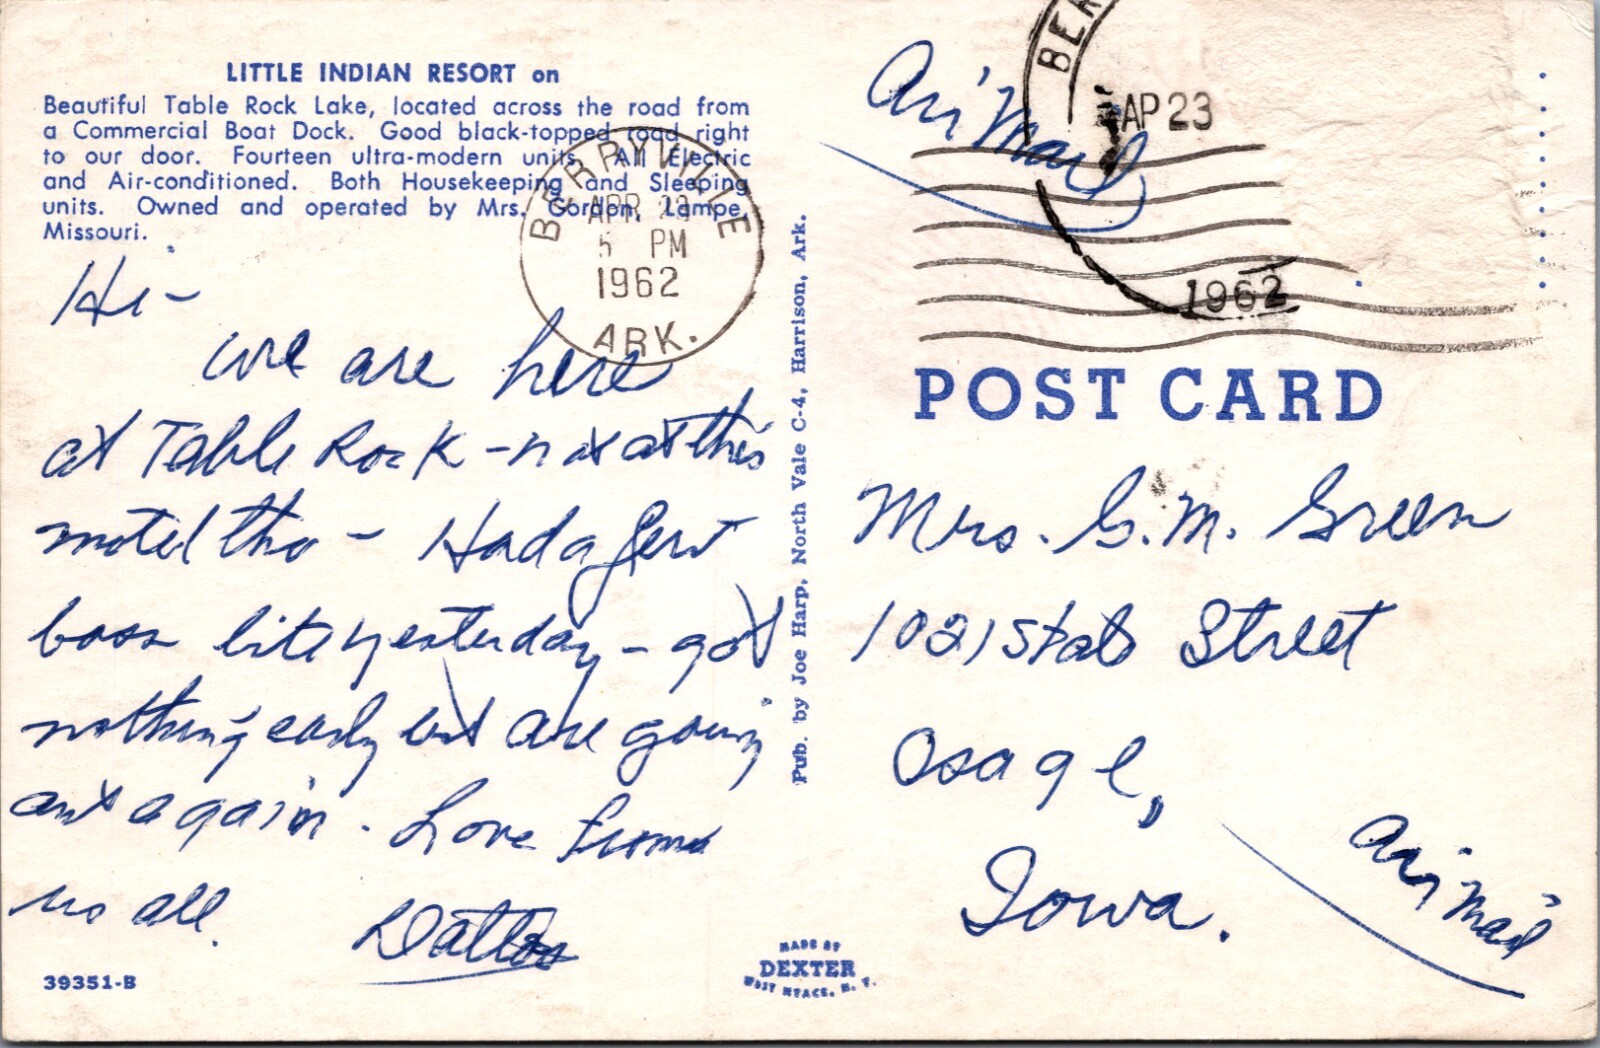 LITTLE INDIAN RESORT on
Beautiful Table Rock Lake, located across the road from
a Commercial Boat Dock. Good black-topped road right
to our door. Fourteen ultra-modern units. All Electric
and Air-conditioned. Both Housekeeping and Sleeping
units. Owned and operated by Mrs. Gordon, Lampe,
Missouri.
BERRYVILLE
APR 23
5 PM
1962
ARK.
Hi-
we are here
at Table Rock - not at this
motel tho - Had a few
bass bite yesterday - got
nothing early but are going
out again. Love from
us all.
39351-B
Pub. by Joe Harp, North Vale C-4, Harrison, Ark.
MADE BY
DEXTER
WEST NYACK, N. Y.
Air Mail
BER
AP 23
1962
POST CARD
Mrs. G. M. Green
1021 State Street
Osage,
Iowa.
Air Mail